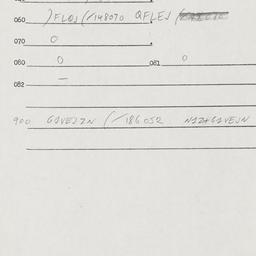 060 )FLOJ(/148070 QFLEJ
070 0
080 0 081 0
082 —
900 GAVEJZN (/186052 NAZ+GAVEJN